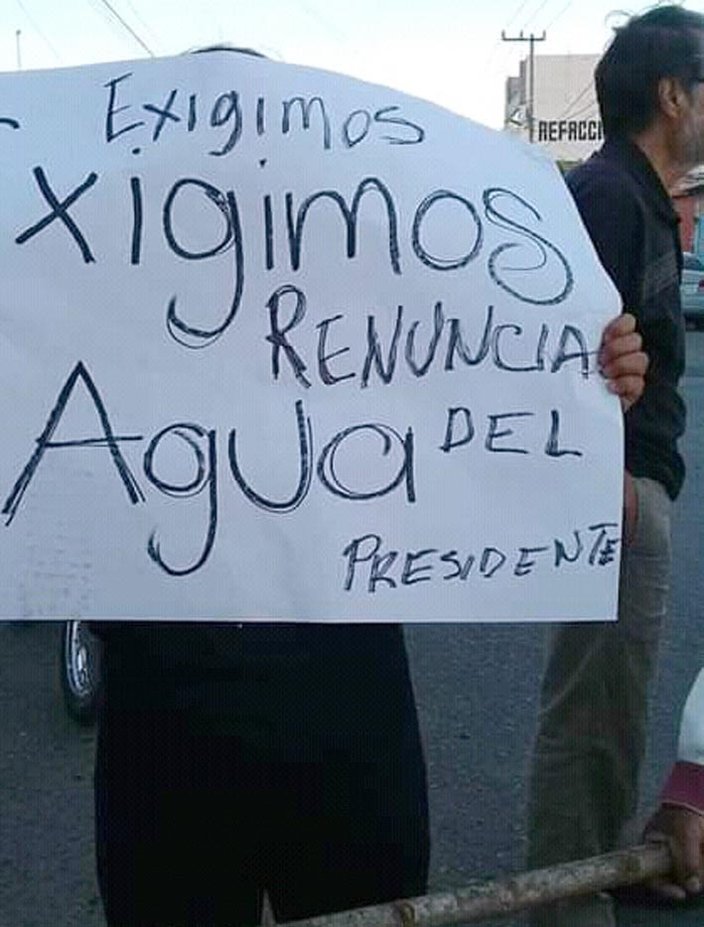 Exigimos
xigimos
RENUNCIA
Agua DEL
PRESIDENTE
REFACCI